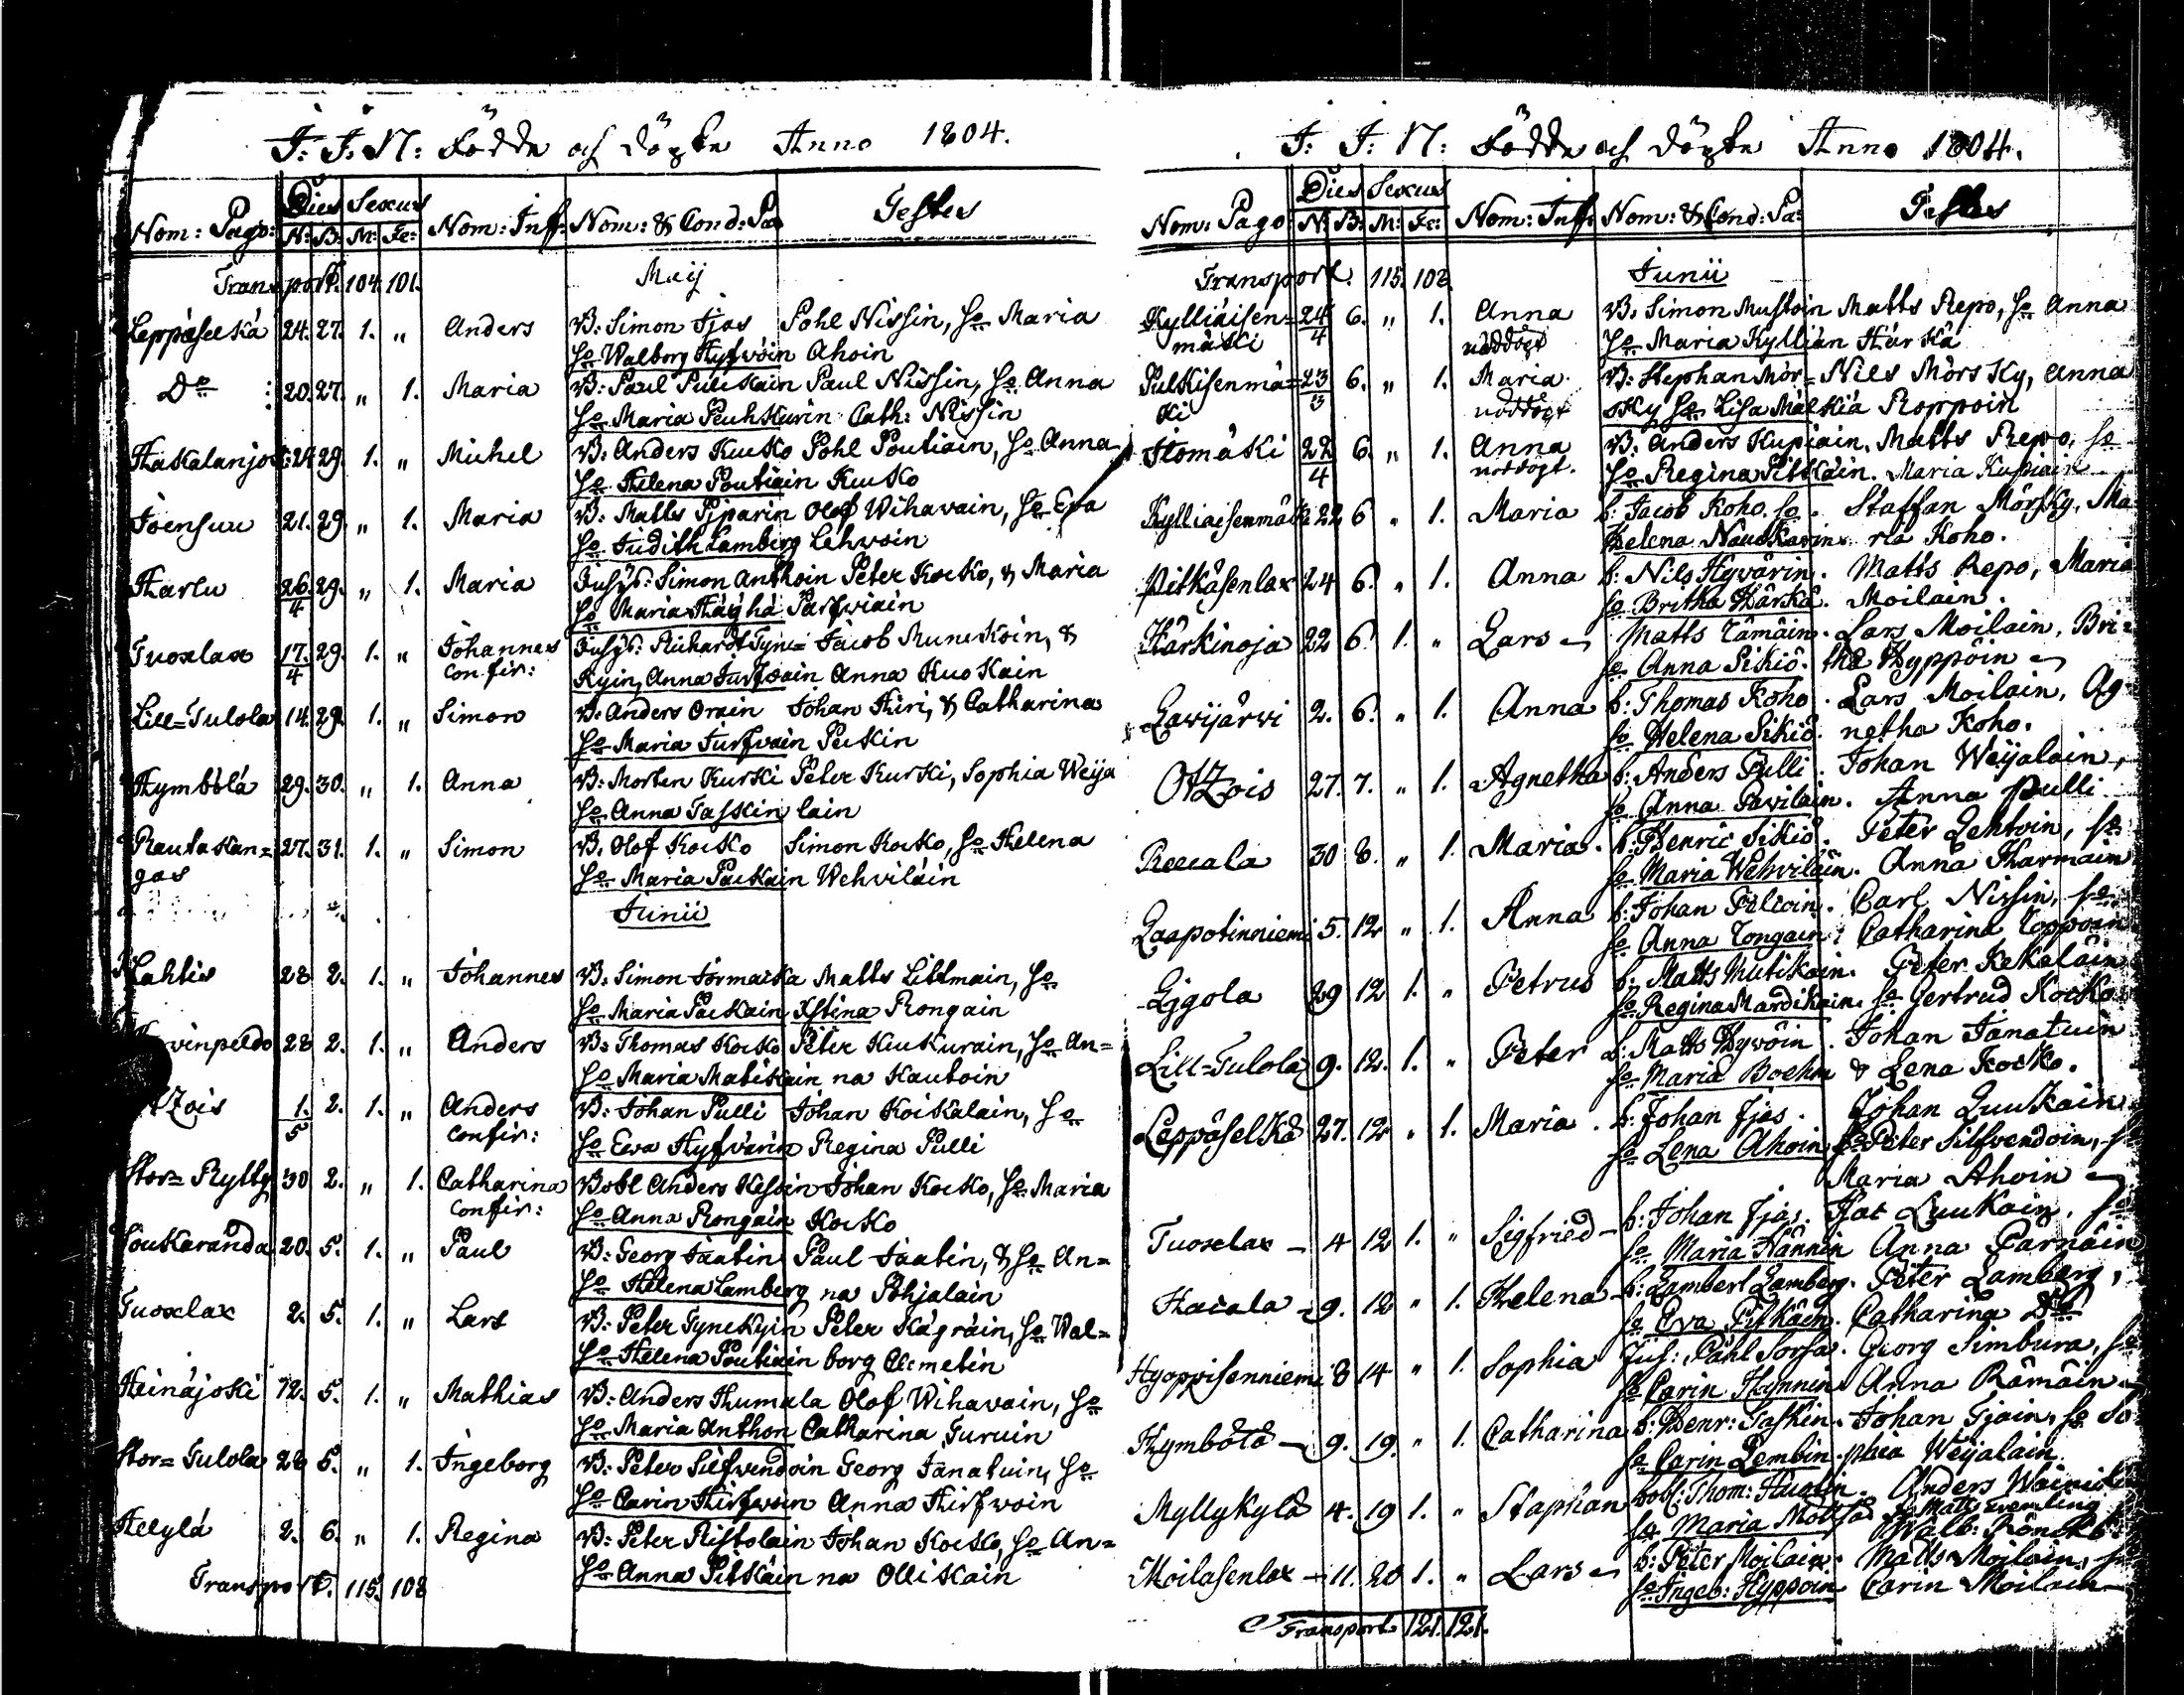 J: J: N: Födde och döpte Anno 1804.
Nom: Pago: Dies Sexus Nom: Inf: Nom: & Cond: Pa: Testes
N: B: M: Fe:
Transport. 104. 101. Maij
Leppäselkä 24. 27. 1. „ Anders B: Simon Ijas Pohl Nissin, H:o Maria
H:o Walborg Hyfvöin Ahoin
D:o 20. 27. „ 1. Maria B: Paul Pulkkain Paul Nissin, H:o Anna
H:o Maria Peuhkurin Cath: Nissin
Hakalanjok: 24 29. 1. „ Michel B: Anders Kucko Pohl Poutiain, H:o Anna
H:o Helena Poutiain Kucko
Joensuu 21. 29. „ 1. Maria B: Matts Piparin Olof Wihavain, H:o Eva
H:o Judith Lamberg Lehvoin
Harlu 26./4 29. „ 1. Maria Inhys: Simon Anthoin Peter Kocko, & Maria
H:o Maria Häyhä Parfwiain
Tuoslax 17./4 29. 1. „ Johannes Inhys: Richard Tyne= Jacob Munckoin, &
confir: kyin, Anna Turfwain Anna Kuokain
Lill=Tulola 14. 29. 1. „ Simon B: Anders Orain Johan Hiri, & Catharina
H:o Maria Turfwain Peckin
Hymbölä 29. 30. „ 1. Anna B: Morten Kurki Peter Kurki, Sophia Weija
H:o Anna Taskin lain
Rautakan= 27. 31. 1. „ Simon B: Olof Kocko Simon Kocko, H:o Helena
gas H:o Maria Packain Wehviläin
Junii
Lahtis 28 2. 1. „ Johannes B: Simon Jormacka Matts Littmain, H:o
H:o Maria Packain Xstina Rongain
vinpeldo 28 2. 1. „ Anders B: Thomas Kocko Peter Kuukurain, H:o An=
H:o Maria Matikain na Kautoin
Zois 1./5 2. 1. „ Anders B: Johan Pulli Johan Koikalain, H:o
confir: H:o Eva Hyfvärin Regina Pulli
Stor=Rytty 30 2. „ 1. Catharina Bobl Anders Kessin Johan Kocko, H:o Maria
confir: H:o Anna Rongain Kocko
Soukaranda 20. 5. 1. „ Paul B: Georg Jaatin Paul Jaatin, & H:o An=
H:o Helena Lamberg na Pohjalain
Tuoslax 2. 5. 1. „ Lars B: Peter Tynckyin Peter Kägräin, H:o Wal=
H:o Helena Poutiain borg Clemetin
Heinäjoki 12. 5. 1. „ Mathias B: Anders Humala Olof Wihavain, H:o
H:o Maria Anthon Catharina Turuin
Stor=Tulola 28 5. „ 1. Ingeborg B: Peter Silfvendoin Georg Janatuin, H:o
H:o Carin Hirfwoin Anna Hirfwoin
Helylä 2. 6. „ 1. Regina B: Peter Ristolain Johan Kocko, H:o An=
H:o Anna Pitkäin na Ollikain
Transport. 115. 108
J: J: N: Födde och döpte Anno 1804.
Nom: Pago Dies Sexus Nom: Inf: Nom: & Cond: Pa: Testes
N: B: M: Fe:
Transport. 115. 108. Junii
Kylliäisen= 24/4 6. „ 1. Anna B: Simon Mustoin Matts Repo, H:o Anna
mäcki nöddöpt H:o Maria Kylliän Härkä
Pulkisenmä= 23/3 6. „ 1. Maria B: Stephan Mör= Nils Mörsky, Anna
ki nöddöpt sky H:o Lisa Mälkiä Roppoin
Ilomäki 22/4 6. „ 1. Anna B: Anders Kupiain. Matts Repo, H:o
nöddöpt. H:o Regina Pitkäin. Maria Kupiain
Kylliäisenmäki 22 6 „ 1. Maria b: Jacob Koho. H:o. Staffan Mörsky, Ma
Helena Naukkarin. ria Koho.
Pitkäsenlax 24 6. „ 1. Anna b: Nils Hyvärin. Matts Repo, Maria
H:o Britha Härkä. Moilain.
Härkinoja 22 6. 1. „ Lars Matts Tämäin. Lars Moilain, Bri=
H:o Anna Sikiö. tha Hyppöin
Lavijärvi 2. 6. „ 1. Anna b: Thomas Koho. Lars Moilain, Ag=
H:o Helena Sikiö. netha Koho.
Otzois 27. 7. „ 1. Agnetha b: Anders Pulli. Johan Weijalain,
H:o Anna Pavilain. Anna Pulli
Reccala 30 8. „ 1. Maria. b: Henric Sikiö. Peter Lehtoin, H:o
H:o Maria Wehviläin. Anna Harmain
Laapotinniemi 5. 12 „ 1. Anna b: Johan Pilvoin. Carl Nissin, H:o
H:o Anna Tongain. Catharina Toppoin
Ligola 29 12 1. „ Petrus b: Matts Mutikain. Peter Kekäläin
H:o Regina Mardikain. H:o Gertrud Kocko
Lill=Tulola 9. 12. 1. „ Peter b: Matts Hyvöin. Johan Janatuin
H:o Maria Boehm & Lena Kocko.
Leppäselkä 27. 12 „ 1. Maria. b: Johan Ijas. Johan Luukain
H:o Lena Ahoin Peter Silfvendoin, H:o
Maria Ahoin
Tuoslax – 4 12 1. „ Sigfried – b: Johan Ijas. Isac Luukain, H:o
H:o Maria Hännin Anna Pärnäin
Hacala – 9. 12 „ 1. Helena – b: Lambert Lamberg. Peter Lamberg,
H:o Eva Pitkäin. Catharina D:o
Hyoppisenniemi 8 14 „ 1. Sophia Inh: Påhl Sorsa. Georg Simbura, H:o
H:o Carin Hynnin Anna Rämäin
Hymbölä – 9. 19. „ 1. Catharina b: Henr: Taskin. Johan Tjain, H:o So
H:o Carin Lembin. phia Weijalain
Myllykylä 4. 19 1. „ Staphan bobl: Thom: Anders
H:o Maria Möttö Matts
Walb:
Moilasenlax – 11. 20 1. „ Lars b: Peter Moilain. Matts Moilain, H:o
H:o Ingeb: Hyppoin Carin Moilain
Transport. 121. 121.